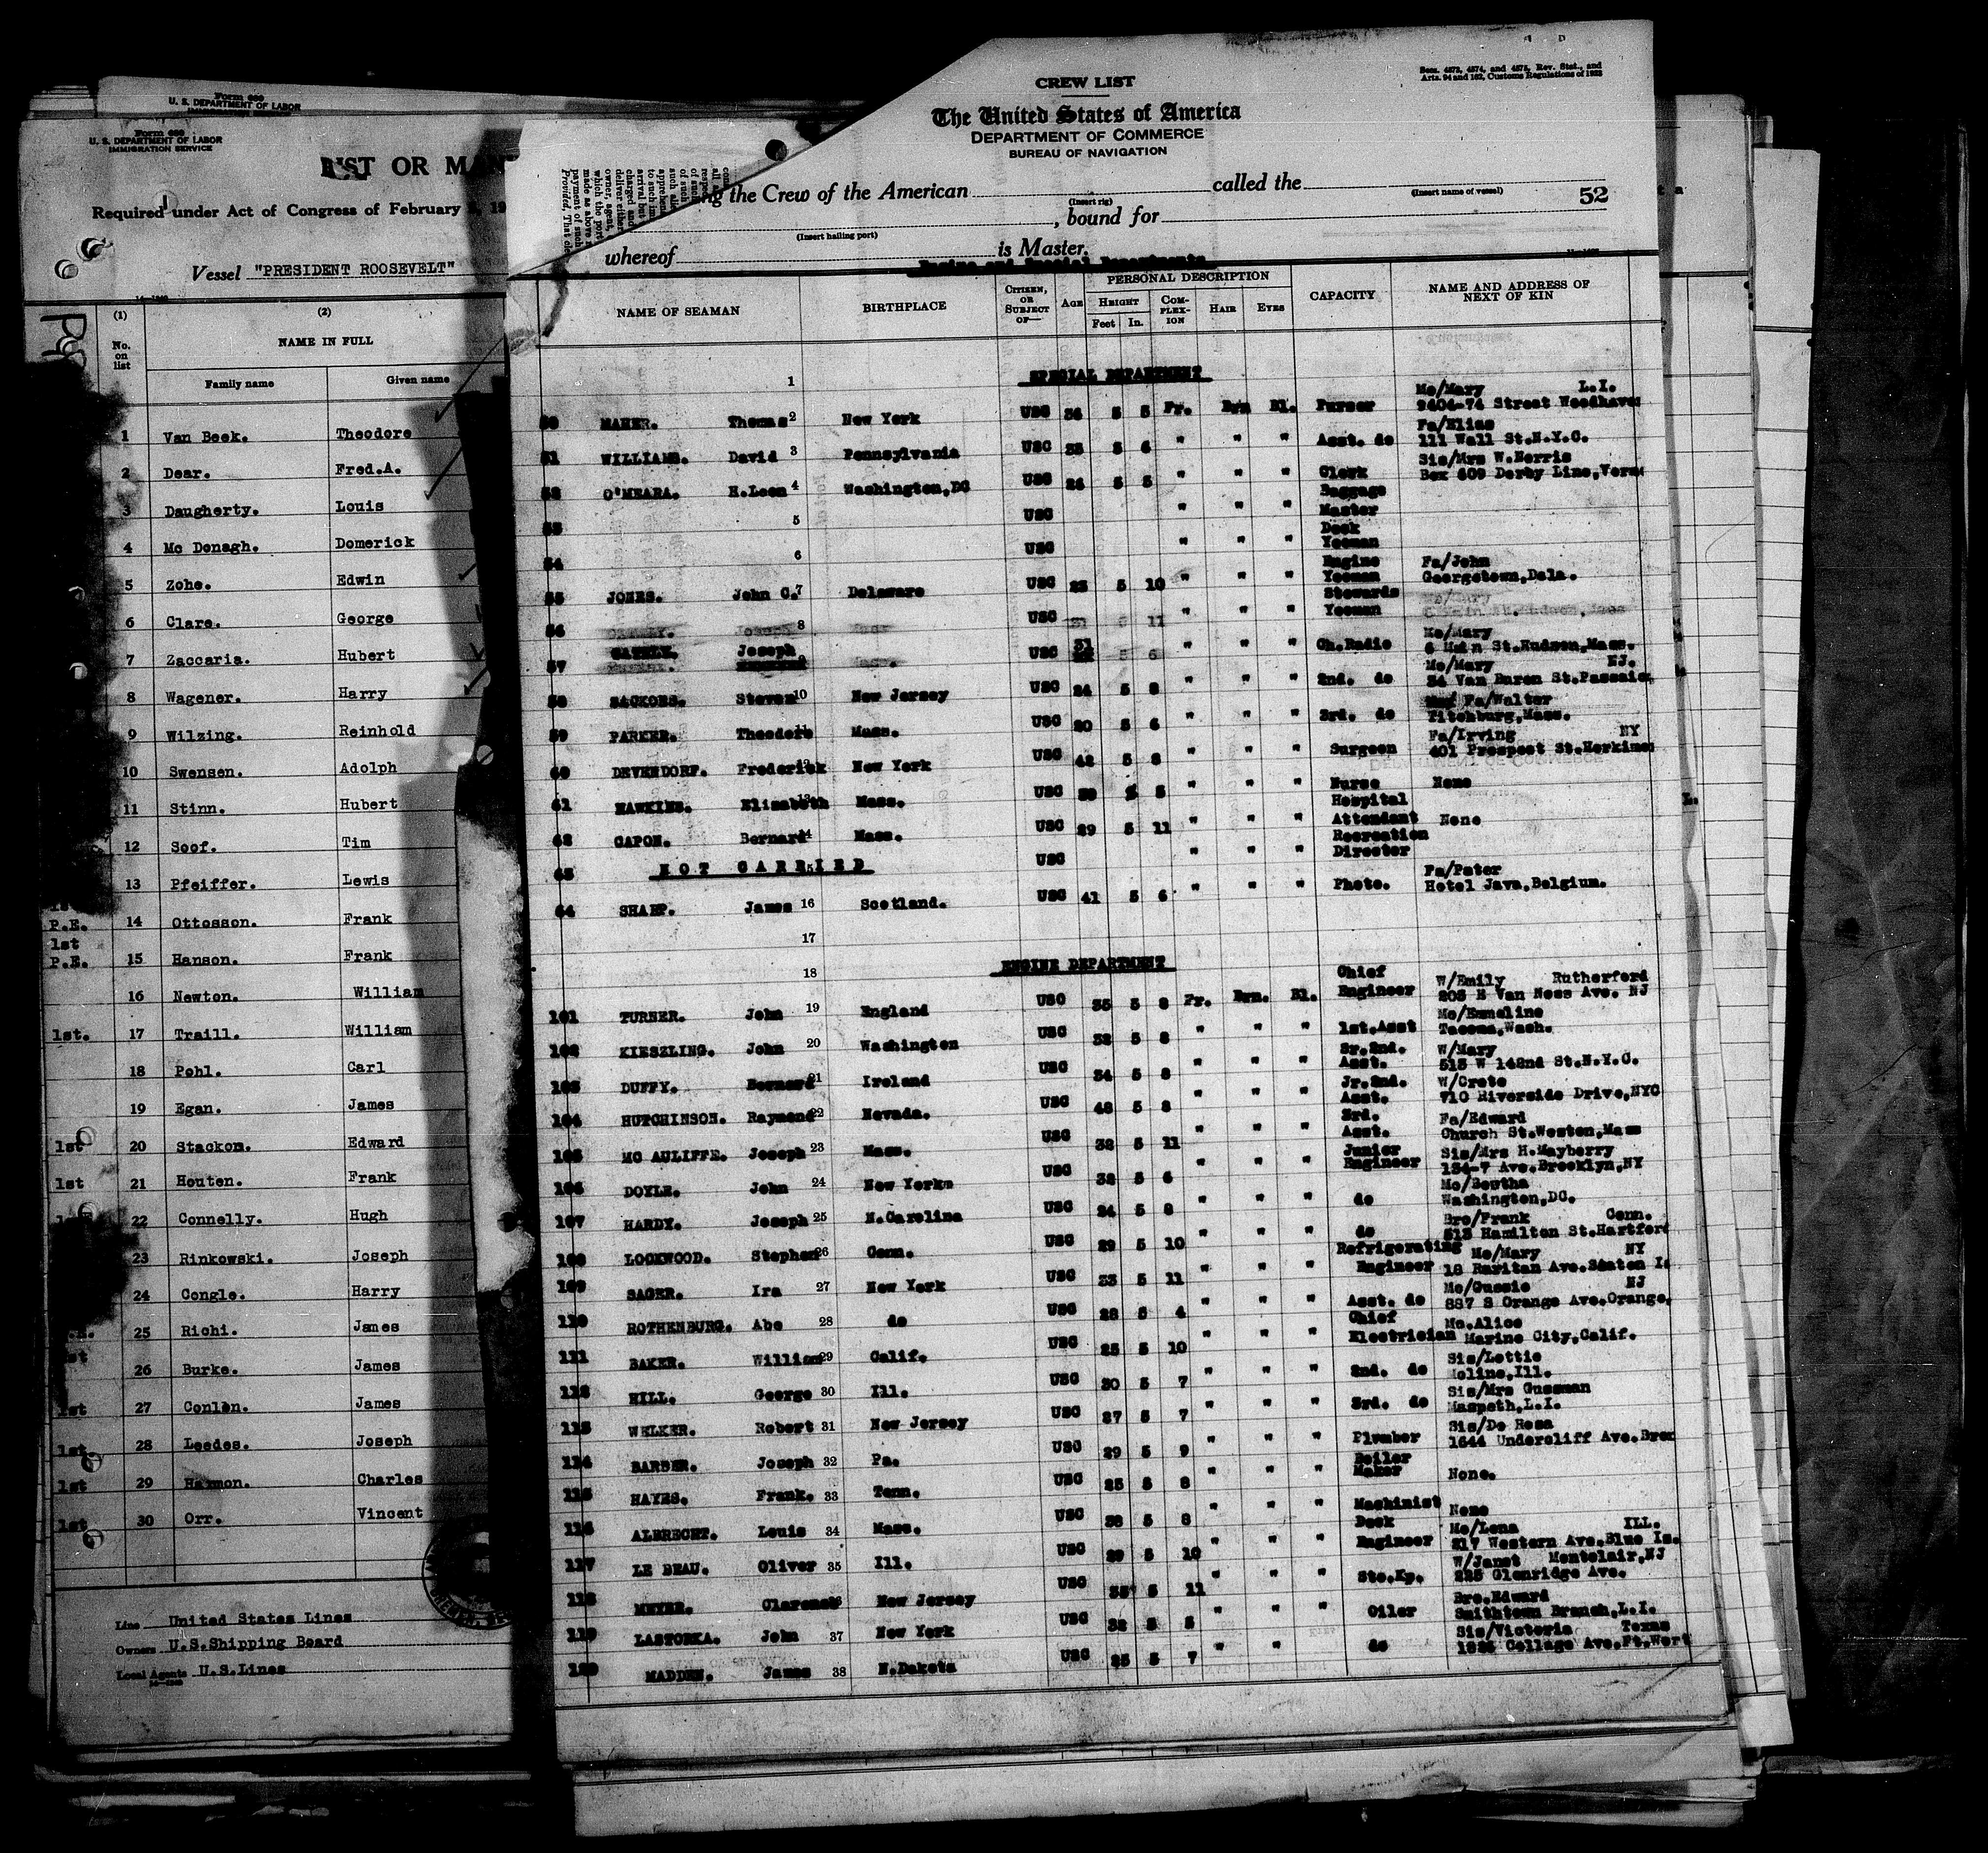 Form 680
U. S. DEPARTMENT OF LABOR
Form 680
U. S. DEPARTMENT OF LABOR
IMMIGRATION SERVICE
LIST OR MAN
Required under Act of Congress of February
Vessel "PRESIDENT ROOSEVELT"
(1) (2)
No. on list
NAME IN FULL
Family name Given name
1 Van Beek. Theodore
2 Dear. Fred.A.
3 Daugherty. Louis
4 Mc Donagh. Domerick
5 Zohe. Edwin
6 Clare. George
7 Zaccaria. Hubert
8 Wagener. Harry
9 Wilzing. Reinhold
10 Swensen. Adolph
11 Stinn. Hubert
12 Soof. Tim
13 Pfeiffer. Lewis
P.E. 14 Ottosson. Frank
1st
P.E. 15 Hanson. Frank
16 Newton. William
1st. 17 Traill. William
18 Pohl. Carl
19 Egan. James
1st 20 Stackon. Edward
1st 21 Houten. Frank
22 Connelly. Hugh
23 Rinkowski. Joseph
24 Congle. Harry
25 Richi. James
26 Burke. James
1st 27 Conlon. James
1st. 28 Leedes. Joseph
1st 29 Harmon. Charles
1st 30 Orr. Vincent
Line United States Lines
Owners U.S.Shipping Board
Local Agents U.S.Lines
CREW LIST
Secs. 4573, 4574, and 4575, Rev. Stat., and
Arts. 94 and 162, Customs Regulations of 1923
The United States of America
DEPARTMENT OF COMMERCE
BUREAU OF NAVIGATION
ng the Crew of the American called the 52
(Insert rig) (Insert name of vessel)
, bound for
(Insert hailing port)
whereof is Master.
Engine and Special Departments
NAME OF SEAMAN BIRTHPLACE CITIZEN, OR SUBJECT OF— AGE PERSONAL DESCRIPTION CAPACITY NAME AND ADDRESS OF NEXT OF KIN
HEIGHT COMPLEXION HAIR EYES
Feet In.
1 SPECIAL DEPARTMENT
50 MAHER. Thomas 2 New York USC 36 5 5 Fr. Brn Bl. Purser Mo/Mary L.I. 9404-74 Street Woodhaven
51 WILLIAMS. David 3 Pennsylvania USC 33 5 6 " " " Asst. do Fa/Elias 111 Wall St.N.Y.C.
52 O'MEARA. H.Leon 4 Washington,DC USC 26 5 5 " " " Clerk Sis/Mrs W.Norris Box 609 Derby Line,Verm
53 5 USC " " " Baggage Master
54 6 USC " " " Deck Yeoman
55 JONES. John C. 7 Delaware USC 23 5 10 " " " Engine Yeoman Fa/John Georgetown,Dela.
56 8 USC 11 " " " Stewards Yeoman
57 Joseph USC 31 5 6 " " " Ch.Radio Mo/Mary 6 Main St.Hudson,Mass.
58 SACKORS. Steven 10 New Jersey USC 24 5 8 " " " 2nd. do Mo/Mary NJ. 34 Van Buren St.Passaic
59 PARKER. Theodore 11 Mass. USC 20 5 6 " " " 3rd. do Fa/Walter Fitchburg,Mass.
60 DEVENDORF. Frederick New York USC 42 5 8 " " " Surgeon Fa/Irving NY 401 Prospect St.Herkimer
61 HAWKINS. Elizabeth Mass. USC 5 " " " Nurse None
62 CAPON. Bernard 14 Mass. USC 29 5 11 " " " Hospital Attendant None
63 NOT CARRIED USC " " " Recreation Director
64 SHARP. James 16 Scotland. USC 41 5 6 " " " Photo. Fa/Peter Hotel Java,Belgium.
17
18 ENGINE DEPARTMENT
101 TURNER. John 19 England USC 35 5 8 Fr. Brn. Bl. Chief Engineer W/Emily Rutherford 205 E Van Ness Ave. NJ
102 KIESZLING. John 20 Washington USC 32 5 8 " " " 1st.Asst Mo/Emmeline Tacoma,Wash.
103 DUFFY. Bernard 21 Ireland USC 34 5 8 " " " Sr.2nd. Asst. W/Mary 513 W 142nd St.N.Y.C.
104 HUTCHINSON. Raymond 22 Nevada. USC 48 5 8 " " " Jr.2nd. Asst. W/Crete 710 Riverside Drive,NYC
105 MC AULIFFE. Joseph 23 Mass. USC 32 5 11 " " " 3rd. Asst. Fa/Edward Church St.Weston,Mass
106 DOYLE. John 24 New York USC 32 5 6 " " " Junior Engineer Sis/Mrs H.Mayberry 134-7 Ave.Brooklyn,NY
107 HARDY. Joseph 25 N.Carolina USC 24 5 8 " " " do Mo/Beutha Washington,DC.
108 LOCKWOOD. Stephen 26 Conn. USC 29 5 10 " " " do Bro/Frank Conn. 513 Hamilton St.Hartford
109 SAGER. Ira 27 New York USC 33 5 11 " " " Refrigerating Engineer Mo/Mary NY 18 Raritan Ave.Staten Is
110 ROTHENBURG. Abe 28 do USC 28 5 4 " " " Asst. do Mo/Gussie NJ 887 S Orange Ave.Orange,
111 BAKER. William 29 Calif. USC 25 5 10 " " " Chief Electrician Mo.Alice Marine City,Calif.
112 HILL. George 30 Ill. USC 30 5 7 " " " 2nd. do Sis/Lottie Moline,Ill.
113 WELKER. Robert 31 New Jersey USC 27 5 7 " " " 3rd. do Sis/Mrs Gussman Maspeth,L.I.
114 BARBER. Joseph 32 Pa. USC 29 5 9 " " " Plumber Sis/De Rosa 1644 Undercliff Ave.Bron
115 HAYES. Frank. 33 Tenn. USC 25 5 8 " " " Boiler Maker None.
116 ALBRECHT. Louis 34 Mass. USC 38 5 8 " " " Machinist None
117 LE BEAU. Oliver 35 Ill. USC 29 5 10 " " " Deck Engineer Mo/Lena ILL. 217 Western Ave.Blue Is.
118 MEYER. Clarence New Jersey USC 35 5 11 " " " Sto.Kp. W/Janet Montclair,NJ 225 Glenridge Ave.
119 LASTORKA. John 37 New York USC 32 5 5 " " " Oiler Bro.Edward Smithtown Branch,L.I.
120 MADDEN. James 38 N.Dakota USC 25 5 7 " " do Sis/Victoria Texas College Ave.Ft.Wort